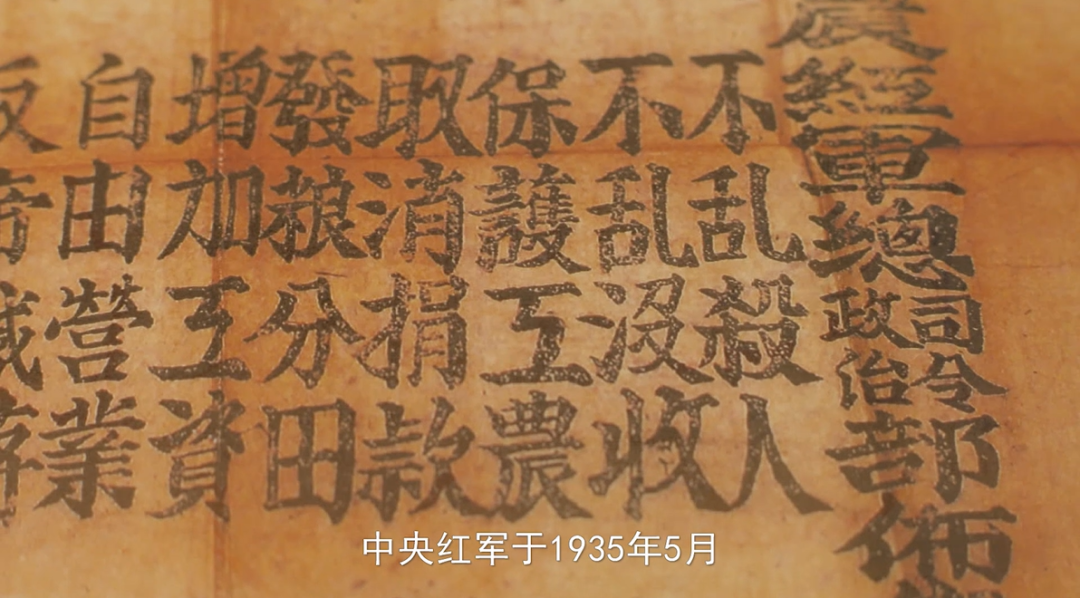 農紅軍總司令政治部佈
不乱殺人
不乱没收
保護工農
取消捐款
發粮分田
增加工資
自由營業
中央红军于1935年5月